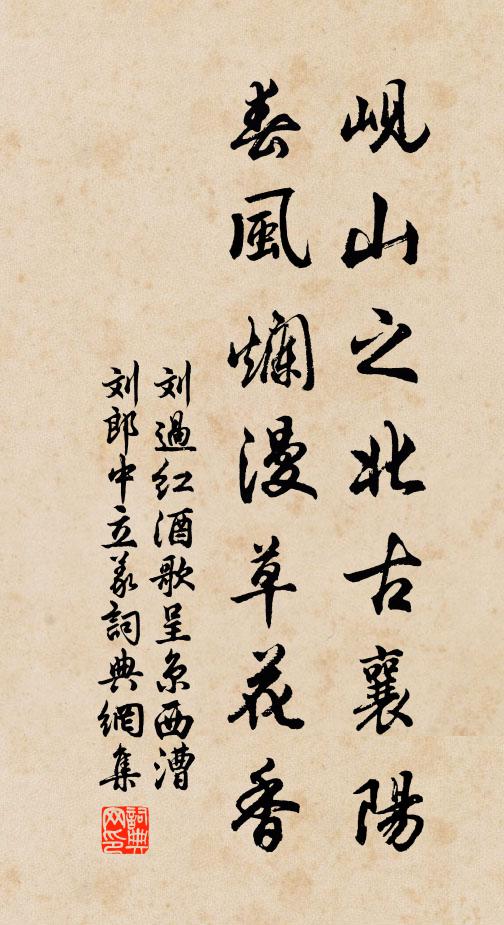 峴山之北古襄陽
春風爛漫草花香
刘過红酒歌呈京西漕
刘郎中立義詞典網集
詞典网印